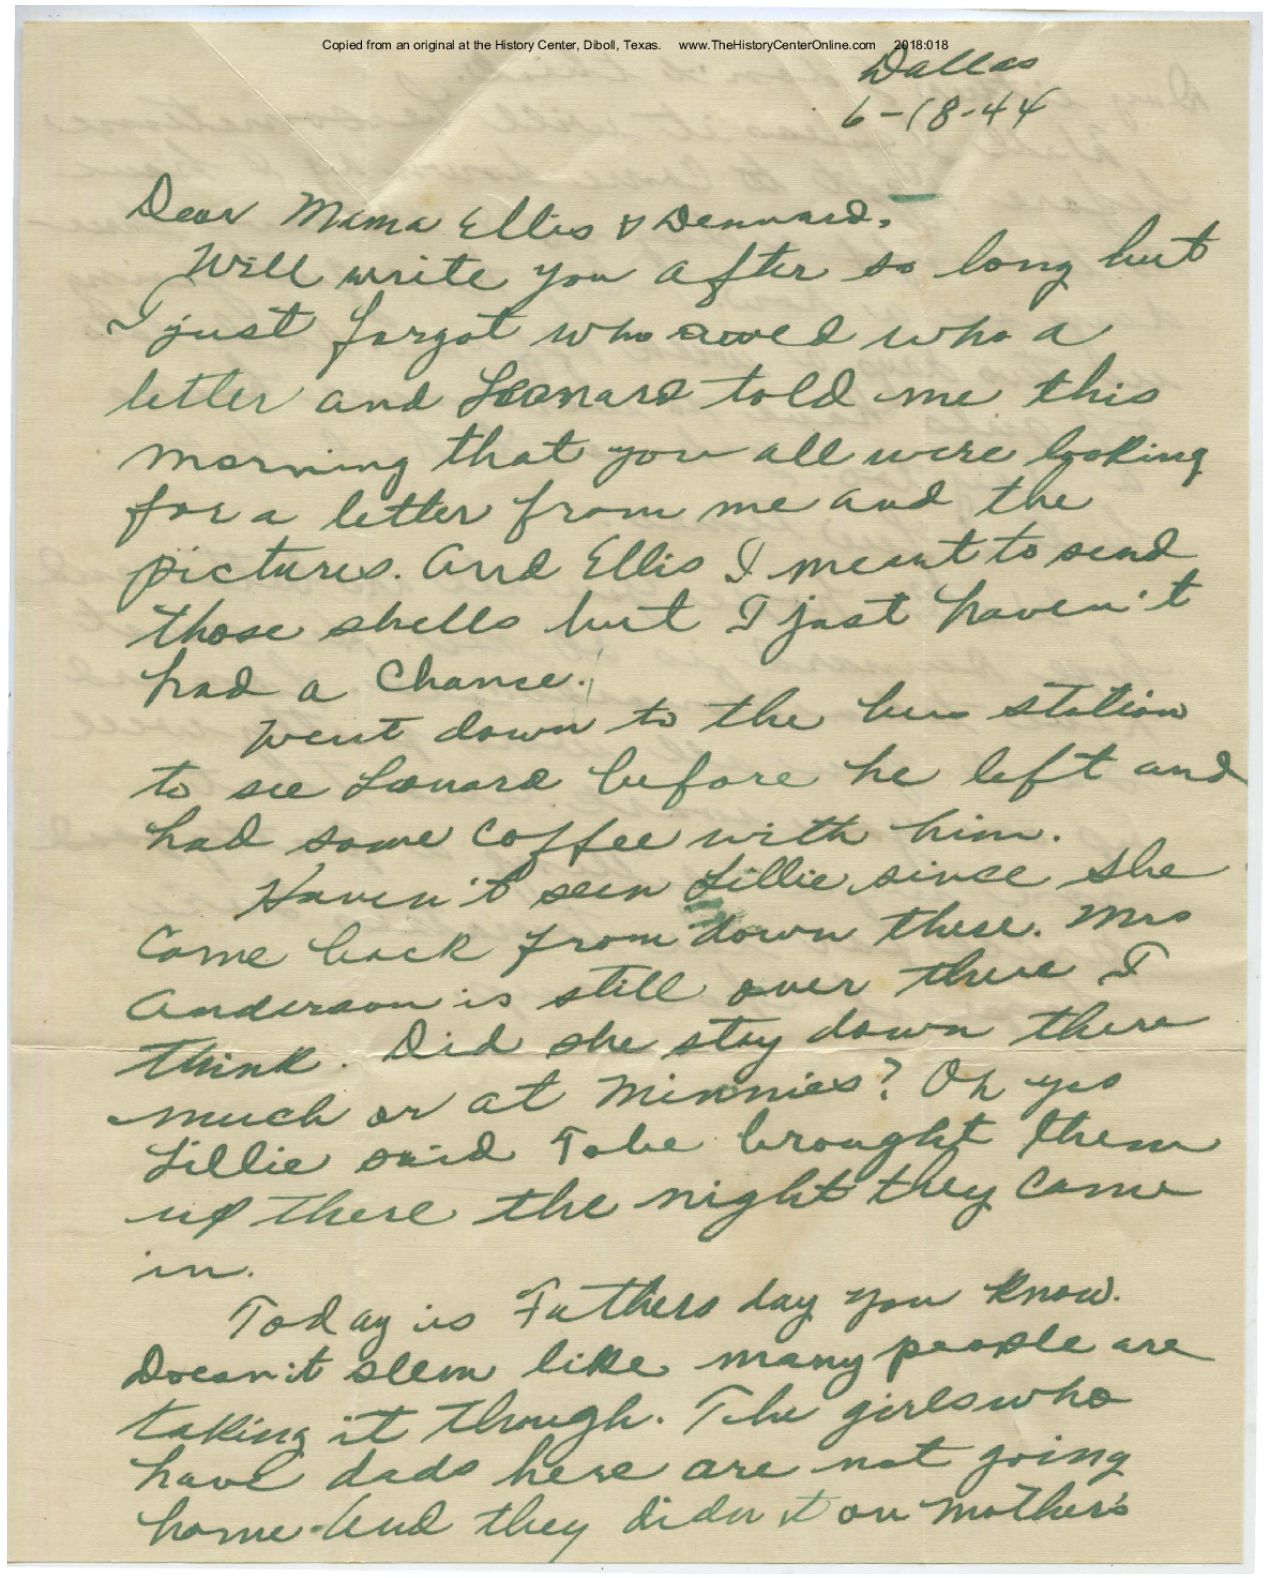 Copied from an original at the History Center, Diboll, Texas. www.TheHistoryCenterOnline.com 2018:018
Dallas
6-18-44
Dear Mama Ellis & Dennard,
Will write you after so long but
I just forgot who owed who a
letter and Leonard told me this
morning that you all were looking
for a letter from me and the
pictures. And Ellis I meant to send
those shells but I just haven't
had a chance.
Went down to the bus station
to see Leonard before he left and
had some coffee with him.
Haven't seen Lillie since she
came back from down there. Mrs
Anderson is still over there I
think. Did she stay down there
much or at Minnies? Oh yes
Lillie said Tobe brought them
up there the night they came
in.
Today is Fathers day you know.
Doesn't seem like many people are
taking it though. The girls who
have dads here are not going
home. And they didn't on Mother's